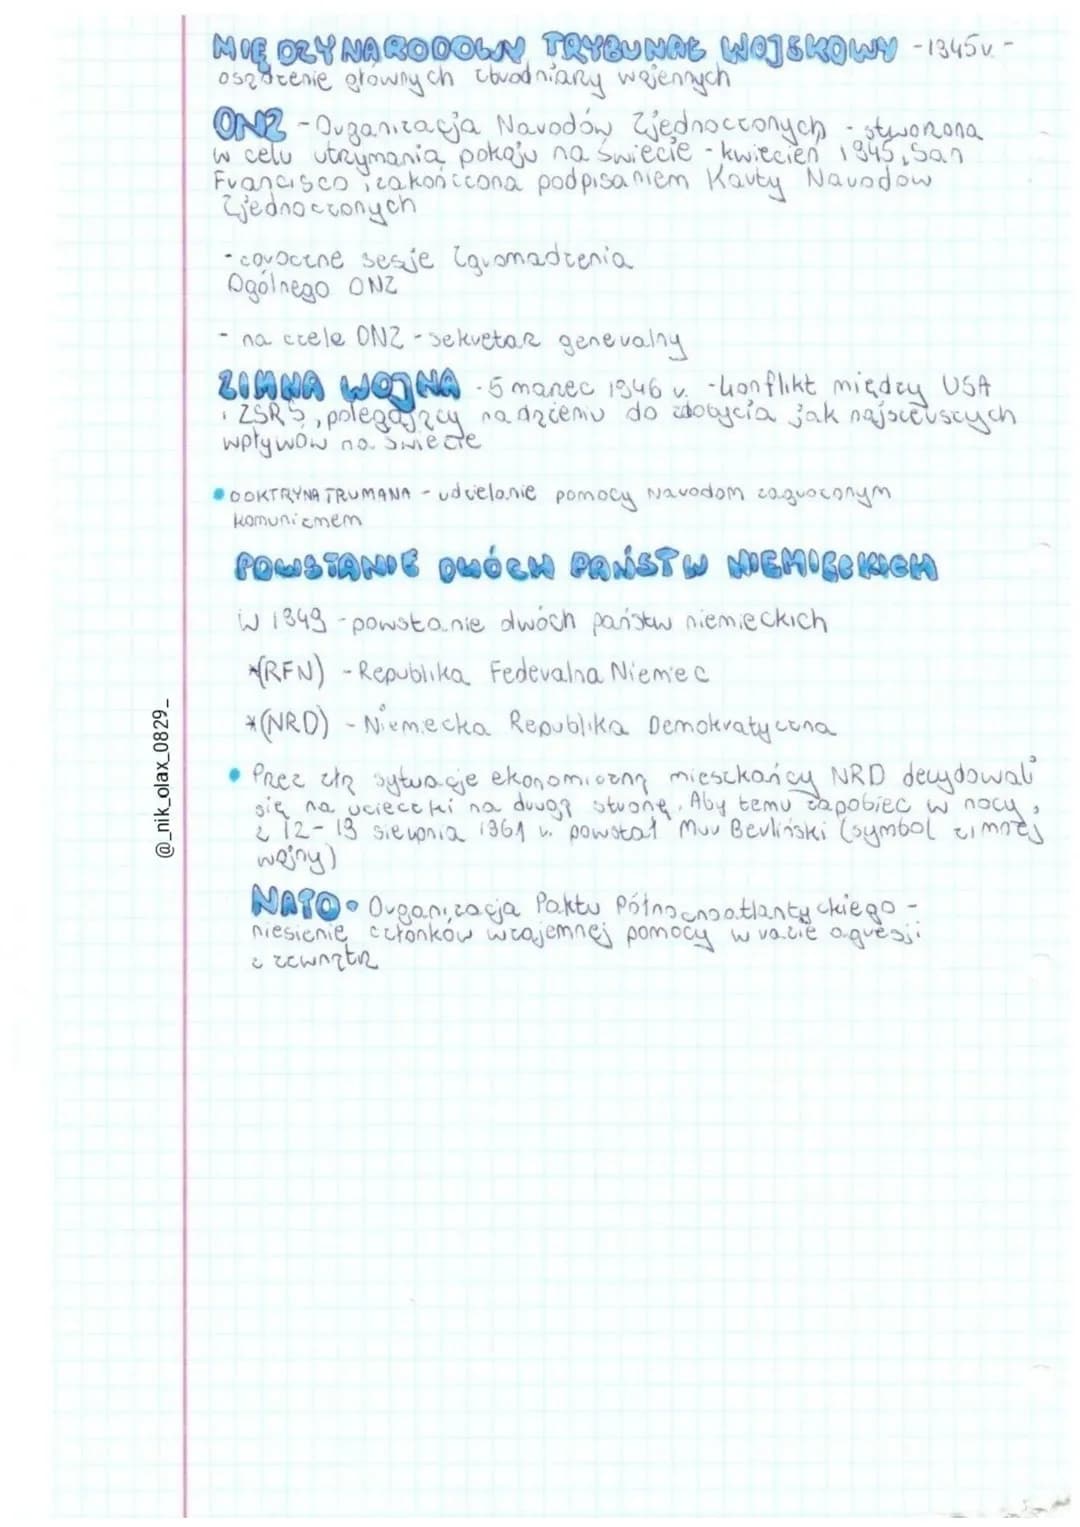 MIĘDZYNARODOWY TRYBUNAŁ WOJSKOWY - 1945 r. -
osądzenie głównych zbrodniarzy wojennych
ONZ - Organizacja Narodów Zjednoczonych - stworzona
w celu utrzymania pokoju na świecie - kwiecień 1945, San
Francisco, zakończona podpisaniem Karty Narodów
Zjednoczonych
- coroczne sesje Zgromadzenia
Ogólnego ONZ
- na czele ONZ - sekretarz generalny
ZIMNA WOJNA - 5 marzec 1946 r. - konflikt między USA
i ZSRS, polegający na dążeniu do zdobycia jak najszerszych
wpływów na świecie
• DOKTRYNA TRUMANA - udzielanie pomocy Narodom zagrożonym
komunizmem
POWSTANIE DWÓCH PAŃSTW NIEMIECKICH
W 1949 - powstanie dwóch państw niemieckich
*(RFN) - Republika Federalna Niemiec
*(NRD) - Niemiecka Republika Demokratyczna
• Przez złą sytuacje ekonomiczną mieszkańcy NRD decydowali
się na ucieczki na drugą stronę. Aby temu zapobiec w nocy,
z 12-13 sierpnia 1961 r. powstał Mur Berliński (symbol zimnej
wojny)
NATO • Organizacja Paktu Północnoatlantyckiego -
niesienie członków wzajemnej pomocy w razie agresji
z zewnątrz
@_nik_olax_0829_